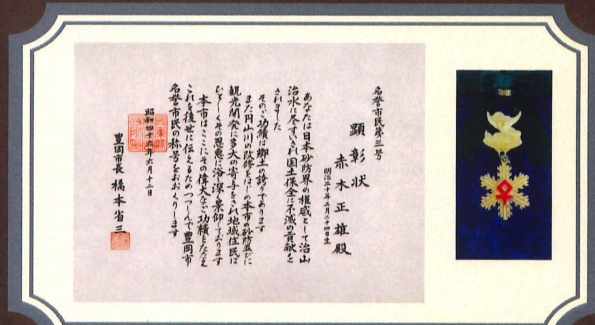 名誉市民第三号
顕彰状
赤木正雄殿
明治二十年三月二十四日生
あなたは日本砂防界の権威として治山
治水に尽すいされ国土保全に不滅の貢献を
されました
そのご功績は郷土の誇りであります
また円山川の改修をはじめ本市の砂防並びに
観光開発に多大の寄与をされ地域住民は
ひとしくその恩恵に浴し深く景仰しております
本市はここにその偉大なご功績をたたえ
これを後世に伝えるためつつしんで豊岡市
名誉市民の称号をおおくりします
昭和四十六年六月十二日
豊岡市長 橋本省三